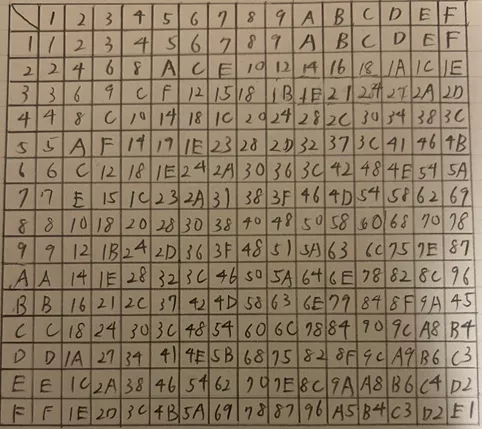 1 2 3 4 5 6 7 8 9 A B C D E F
1 1 2 3 4 5 6 7 8 9 A B C D E F
2 2 4 6 8 A C E 10 12 14 16 18 1A 1C 1E
3 3 6 9 C F 12 15 18 1B 1E 21 24 27 2A 2D
4 4 8 C 10 14 18 1C 20 24 28 2C 30 34 38 3C
5 5 A F 14 19 1E 23 28 2D 32 37 3C 41 46 4B
6 6 C 12 18 1E 24 2A 30 36 3C 42 48 4E 54 5A
7 7 E 15 1C 23 2A 31 38 3F 46 4D 54 58 62 69
8 8 10 18 20 28 30 38 40 48 50 58 60 68 70 78
9 9 12 1B 24 2D 36 3F 48 51 5A 63 6C 75 7E 87
A A 14 1E 28 32 3C 46 50 5A 64 6E 78 82 8C 96
B B 16 21 2C 37 42 4D 58 63 6E 79 84 8F 9A 45
C C 18 24 30 3C 48 54 60 6C 78 84 90 9C A8 B4
D D 1A 27 34 41 4E 5B 68 75 82 8F 9C A9 B6 C3
E E 1C 2A 38 46 54 62 70 7E 8C 9A A8 B6 C4 D2
F F 1E 2D 3C 4B 5A 69 78 87 96 A5 B4 C3 D2 E1